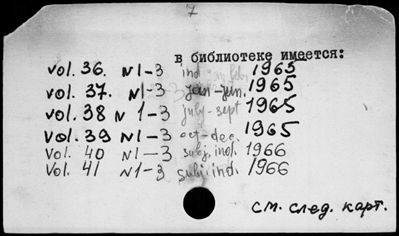 7
в библиотеке имеется:
vol. 36. N1-3 ind 1965
vol. 37. N1-3 jan-jun. 1965
vol. 38 N 1-3 july-sept 1965
vol. 39 N1-3 oct-dec. 1965
vol. 40 N1-3 subj. ind. 1966
vol. 41 N1-3 subj. ind. 1966
см. след. карт.